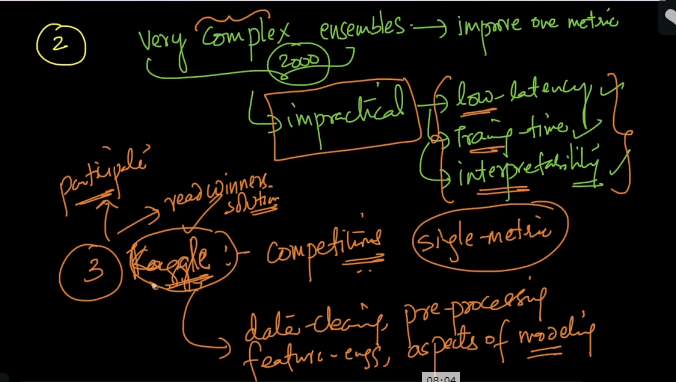 2
very complex ensembles → improve one metric
2000
impractical → low-latency ✓
Traing-time ✓
interpretability ✓
participate
read winners
solution
3
Kaggle :- competitions single-metric
data-cleaning, pre-processing
feature-engg, aspects of modeling
08:04